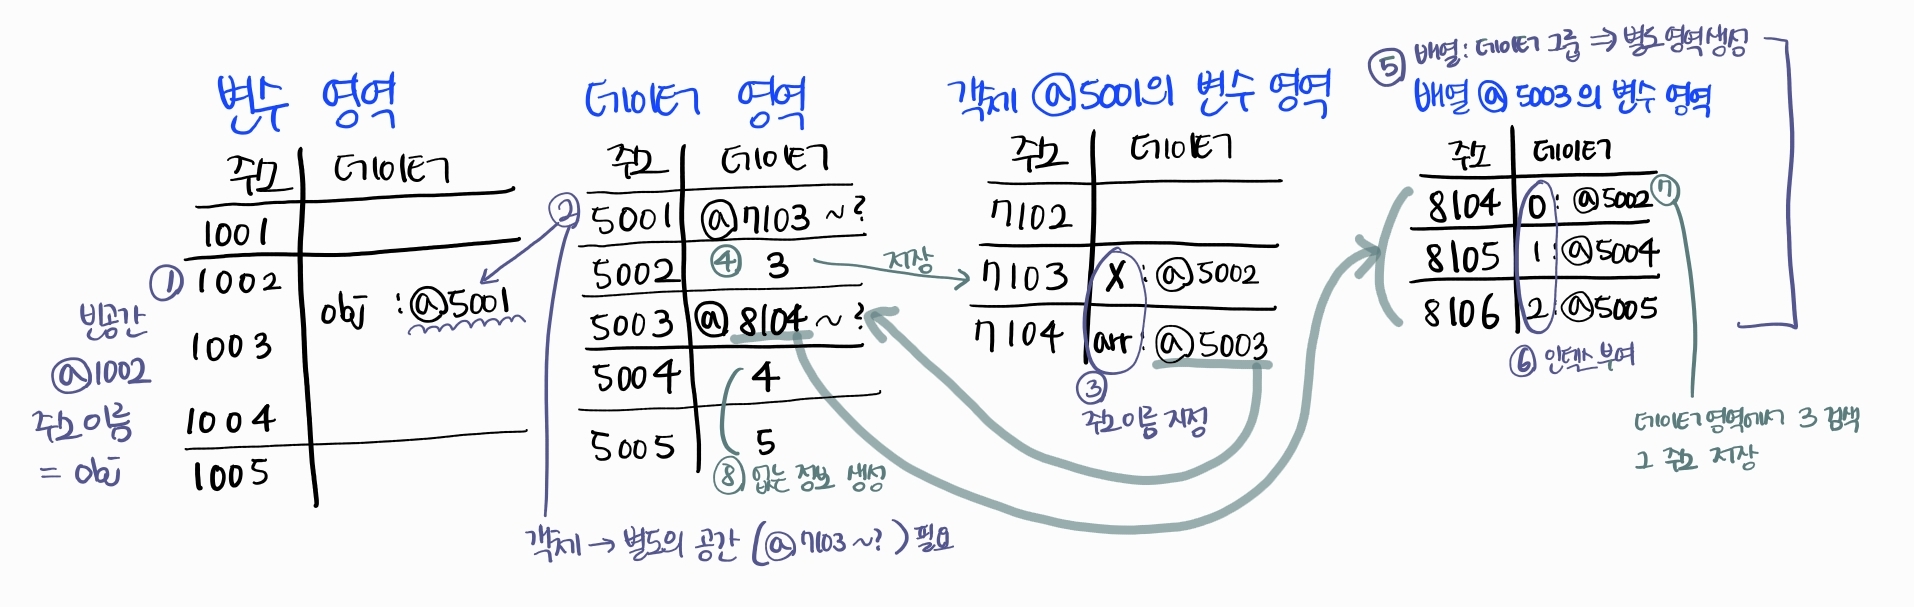 변수 영역
주소 데이터
1001
① 1002
obj : @5001
1003
1004
1005
빈공간
@1002
주소이름
= obj
데이터 영역
주소 데이터
② 5001 @7103 ~ ?
5002 ④ 3
저장
5003 @ 8104 ~ ?
5004 4
5005 5
⑧ 없는 정보 생성
객체 → 별도의 공간 (@7103 ~?) 필요
객체 @5001의 변수 영역
주소 데이터
7102
7103 x : @5002
7104 arr : @5003
③
주소이름 지정
⑤ 배열 : 데이터 그룹 ⇒ 별도 영역생성
배열 @ 5003의 변수 영역
주소 데이터
8104 0 : @5002 ⑦
8105 1 : @5004
8106 2 : @5005
⑥ 인덱스 부여
데이터 영역에서 3 검색
그 주소 저장